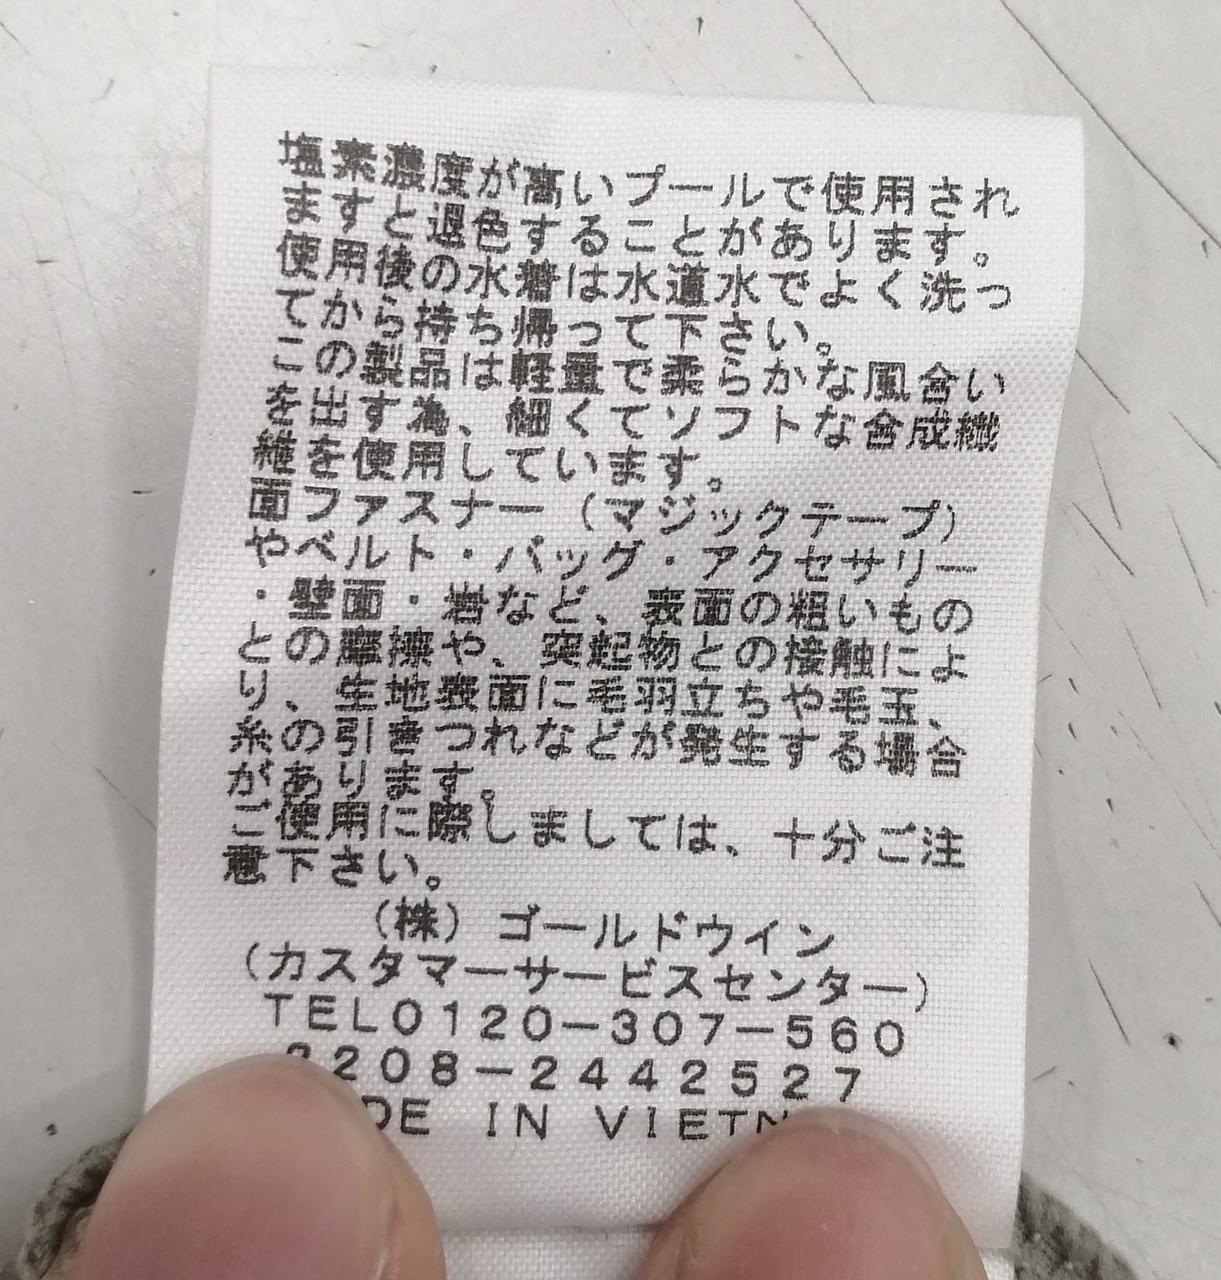 塩素濃度が高いプールで使用され
ますと退色することがあります。
使用後の水着は水道水でよく洗っ
てから持ち帰って下さい。
この製品は軽量で柔らかな風合い
を出す為、細くてソフトな合成繊
維を使用しています。
面ファスナー（マジックテープ）
やベルト・バッグ・アクセサリー
・壁面・岩など、表面の粗いもの
との摩擦や、突起物との接触によ
り、生地表面に毛羽立ちや毛玉、
糸の引きつれなどが発生する場合
があります。
ご使用に際しましては、十分ご注
意下さい。
（株）ゴールドウイン
（カスタマーサービスセンター）
TEL0120－307－560
208－2442527
DE IN VIETN